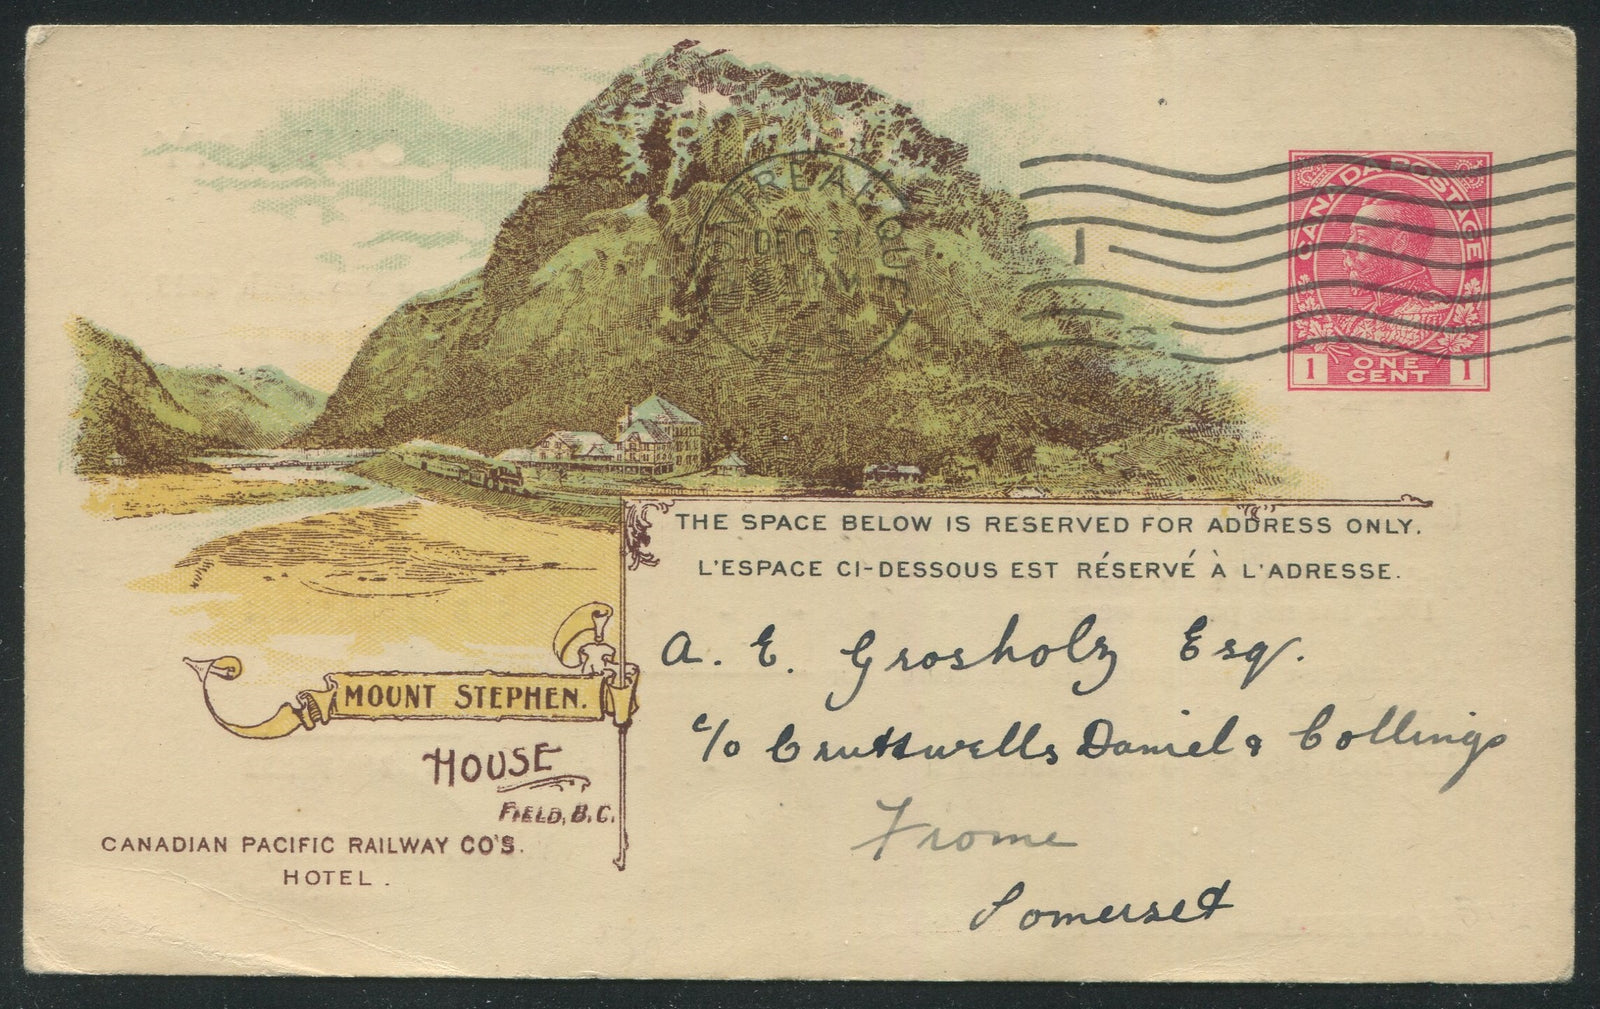 CANADA POSTAGE
1 ONE CENT 1
MONTREAL QUE
DEC 3
1
THE SPACE BELOW IS RESERVED FOR ADDRESS ONLY.
L'ESPACE CI-DESSOUS EST RÉSERVÉ À L'ADRESSE.
A. E. Grosholz Esq.
c/o Cruttwells Daniel & Collings
Frome
Somerset
MOUNT STEPHEN.
HOUSE
FIELD, B.C.
CANADIAN PACIFIC RAILWAY CO'S.
HOTEL.